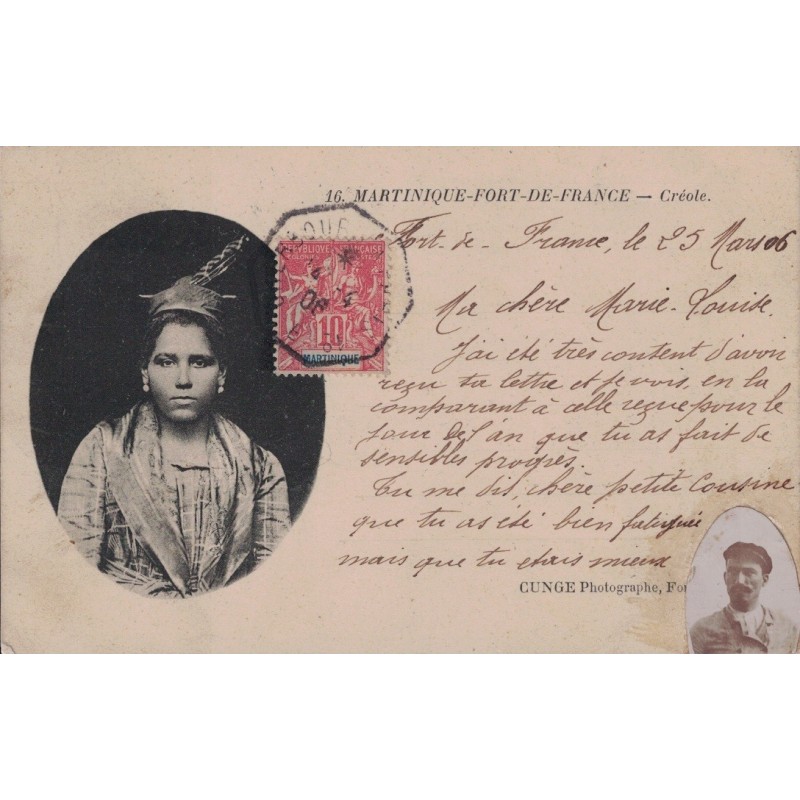 16. MARTINIQUE-FORT-DE-FRANCE — Créole.
RÉPUBLIQUE FRANÇAISE
COLONIES POSTES
10
MARTINIQUE
Fort-de-France, le 25 Mars 06
Ma chère Marie-Louise.
J'ai été très content d'avoir
reçu ta lettre et je vois, en la
comparant à celle reçue pour le
jour de l'an que tu as fait de
sensibles progrès.
Tu me dis, chère petite Cousine
que tu as été bien fatiguée
mais que tu etais mieux
CUNGE Photographe, For